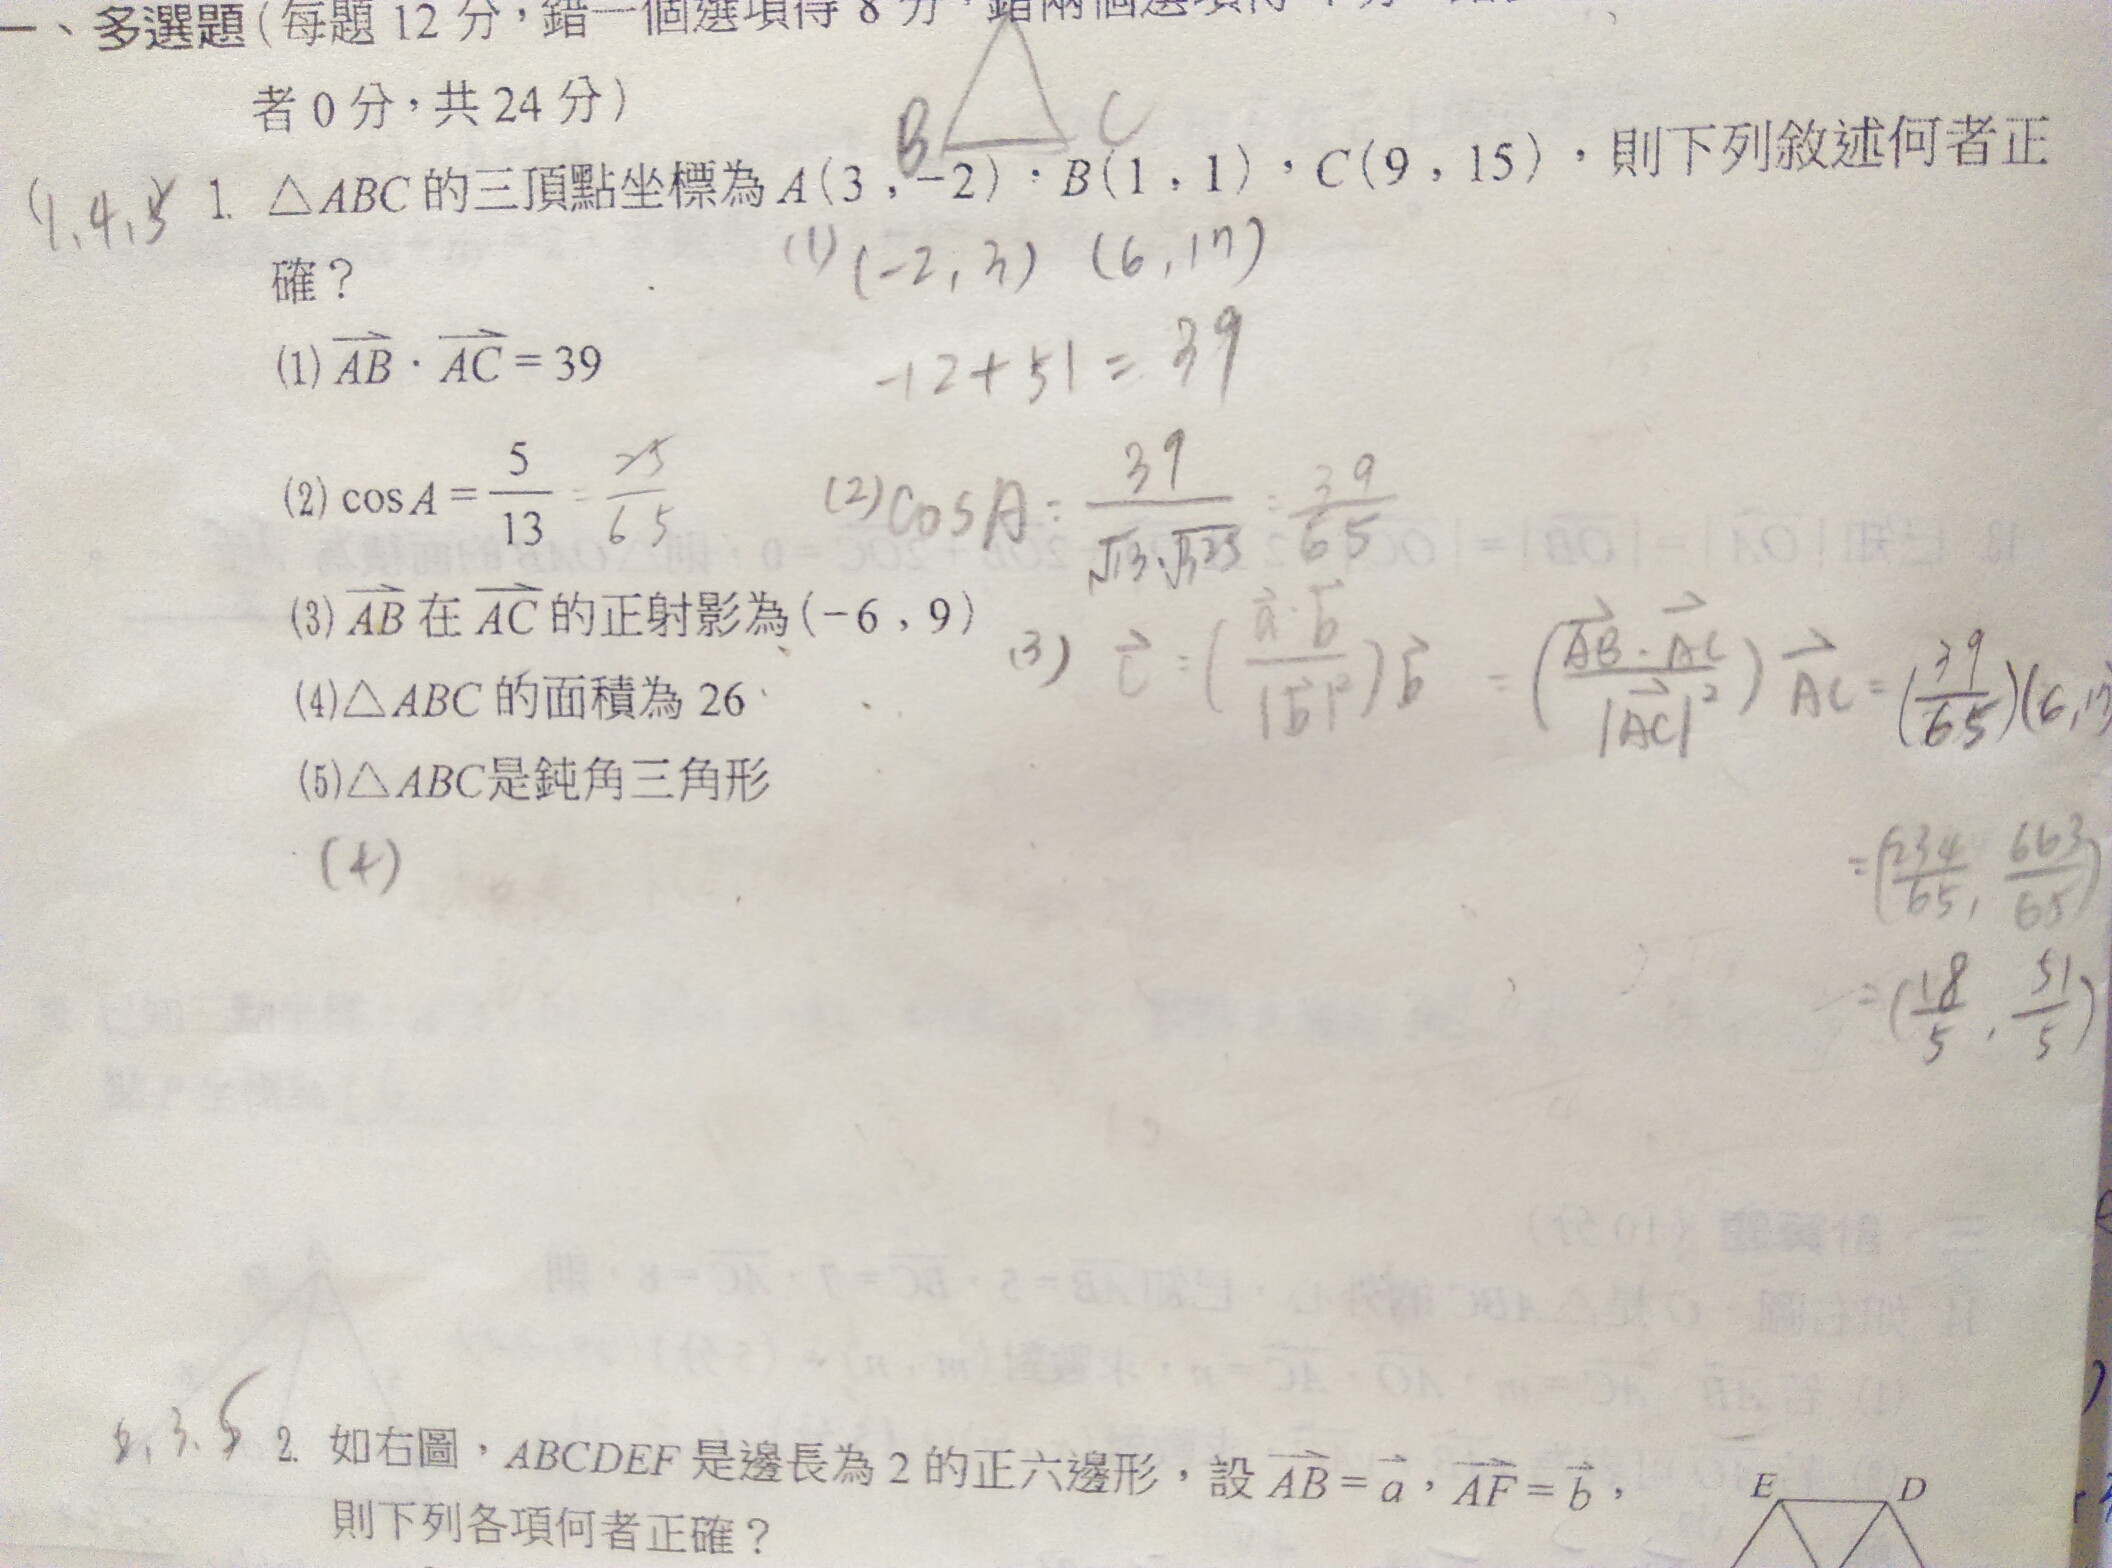 一、多選題(每題 12 分，錯一個選項得 8 分，錯兩個選項得
者 0 分，共 24 分)
B C
(1,4,5) 1. △ABC 的三頂點坐標為 A(3 , -2)，B(1 , 1)，C(9 , 15)，則下列敘述何者正
確？
(1) (-2, 3) (6, 17)
(1) AB · AC = 39
-12+51 = 39
(2) cos A = 5/13 = 25/65
(2) cosA = 39/(√13·√325) = 39/65
(3) AB 在 AC 的正射影為(-6 , 9)
(3) c = (a·b/|b|²)b = (AB·AC/|AC|²)AC = (39/65)(6, 17
(4) △ABC 的面積為 26
(5) △ABC是鈍角三角形
(4)
=(234/65, 663/65)
=(18/5, 51/5)
2. 如右圖，ABCDEF 是邊長為 2 的正六邊形，設 AB = a，AF = b，
則下列各項何者正確？
E D